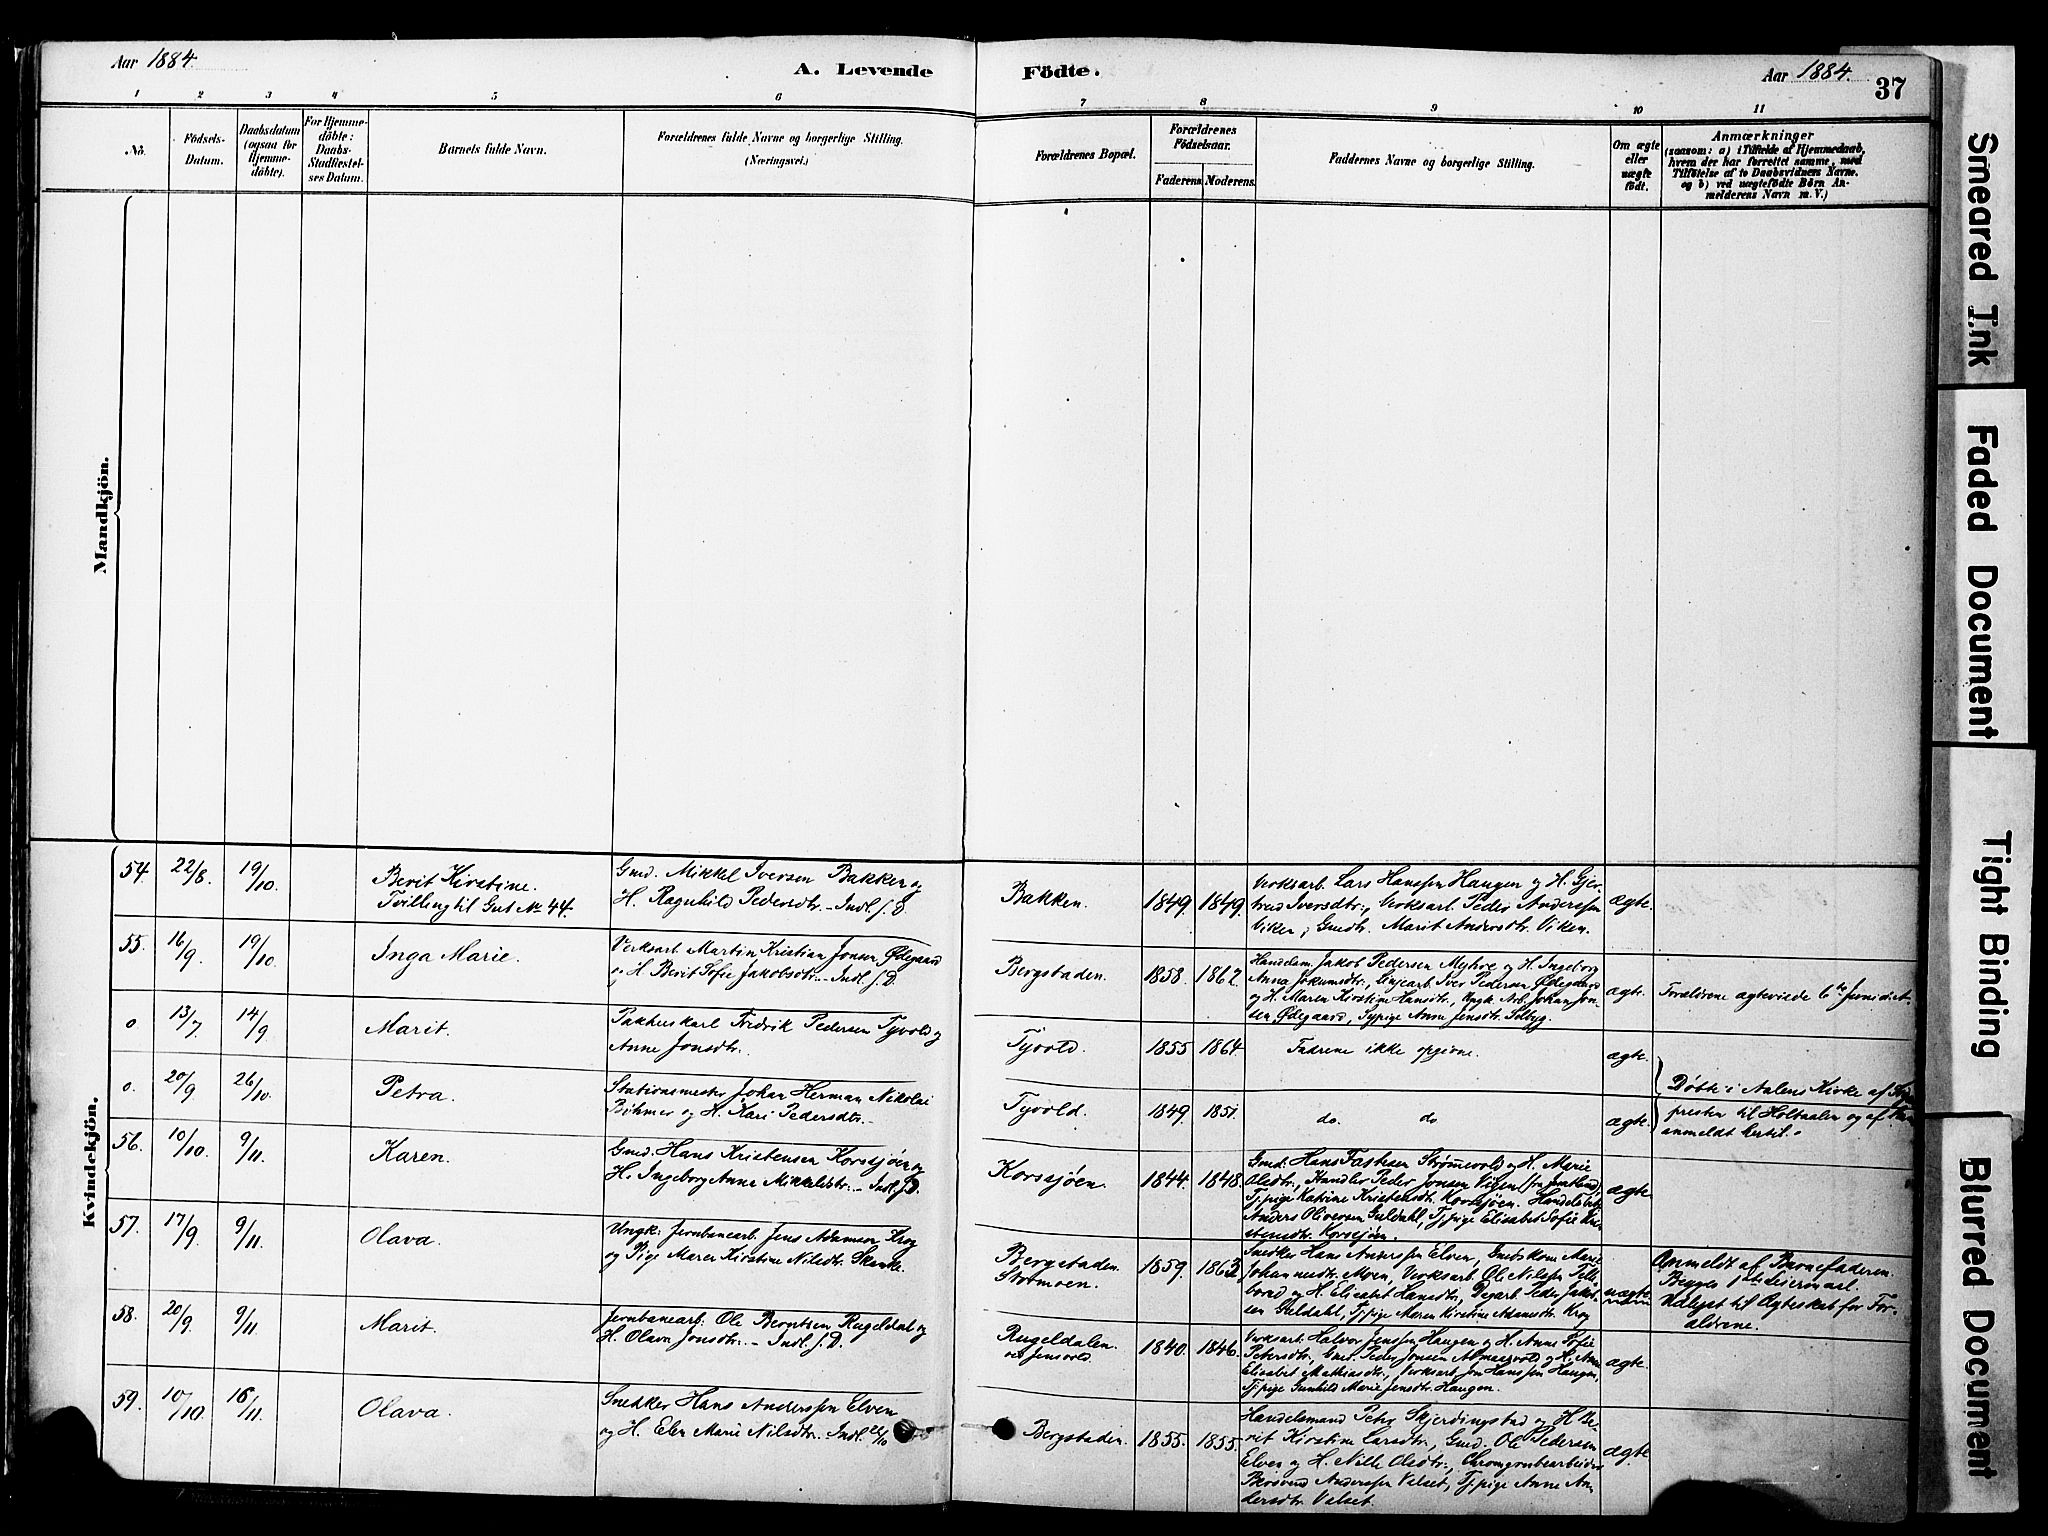 Aar 1884.
A. Levende
Födte.
Aar 1884.
37
1 2 3 4 5 6
7 8 9 10 11
No.
Födsels-
Datum.
Daabsdatum
(ogsaa for
Hjemme-
döbte).
For Hjemme-
döbte:
Daabs-
Stadfæstel-
ses Datum.
Barnets fulde Navn.
Forældrenes fulde Navne og borgerlige Stilling.
(Næringsvei.)
Forældrenes Bopæl.
Forældrenes
Födselsaar.
Faderens. Moderens.
Faddernes Navne og borgerlige Stilling.
Om ægte
eller
uægte
födt.
Anmærkninger
(saasom: a) i Tilfælde af Hjemmedaab,
hvem der har forrettet samme, med
Tilföielse af to Daabsvidners Navne.
og b) ved uægtefödte Börn An-
melderens Navn m. V.)
Mandkjön.
Kvindekjön.
54. 22/8. 19/10.
Berit Kirstine.
Tvilling til Gut No 44.
Gmd. Mikkel Iversen Bakken og
H. Ragnhild Pedersdtr. - Indl. s. D.
Bakken. 1849. 1849.
Verksarb. Lars Hanssen Haugen og H. Gjer-
trud Iversdtr., Verksarb. Peder Anderssen
Viken, Gmdtr. Marit Andersdtr. Viken.
ægte.
55. 16/9. 19/10.
Inga Marie.
Verksarb. Martin Kristian Jonsen Ødegaard
og H. Berit Sofie Jakobsdtr. - Indl. s. D.
Bergstaden. 1858. 1862.
Handelsm. Jakob Pedersen Myhre og H. Ingeborg
Anna Jokumsdtr., Linjearb. Iver Pedersen Ødegaard
og H. Maren Kirstine Hansdtr., Ungk. Arb. Johan Jon-
sen Ødegaard, Sypige Anne Jensdtr. Tolbyg.
ægte.
Forældrene ægteviede 6te Juni d. A.
o 13/7 14/9
Marit.
Pakhuskarl Fredrik Pedersen Tyvold og
Anne Jonsdtr.
Tyvold. 1855 1864.
Fadrene ikke opgivne.
ægte.
o. 20/9 26/10.
Petra.
Stationsmester Johan Herman Nikolai
Bøhmer og H. Kari Pedersdtr. -
Tyvold. 1849. 1851.
do. do
ægte.
Døbte i Aalens Kirke af
presten til Holtaalen og af
anmeldt hertil.
56. 10/10. 9/11.
Karen.
Gmd. Hans Kristensen Korssjøen og
H. Ingeborg Anne Mikkelsdtr. - Indl. s. D.
Korssjøen. 1844. 1848.
Gmd. Hans Fastesen Strømvold og H. Marie
Olsdtr., Handler Peder Jonsen Vigen
Tj.pige Katrine Kristensdtr. Korssjøen. Handelsbetj.
Anders Oliversen Guldahl, Tj.pige Elisabet Sofie Kri-
stensdtr. Korssjøen.
ægte.
57. 17/9. 9/11.
Olava.
Ungk. Jernbanearb. Jens Adamsen Krog
og Pige Maren Kirstine Nilsdtr. Skanke.
Bergstaden.
Strømoen.
1859. 1863
Snedker Hans Anderssen Elven, Gmdskone Marie
Johannesdtr. Moen, Verksarb. Ole Nilssen Felle-
bored og H. Elisabet Hansdtr., Dagarb. Peder Jakob-
sen Guldahl, Tj.pige Maren Kirstine Adamsdtr. Krog
uægte
Anmeldt af Barnefaderen.
Begges 1ste Leiermaal.
Udlyst til Ægteskab for For-
ældrene.
58. 20/9. 9/11.
Marit.
Jernbanearb. Ole Berntsen Rugeldal og
H. Olava Jonsdtr. - Indl. s. D.
Rugeldalen.
ved Jensvold.
1840. 1846.
Verksarb. Halvor Jenssen Haugen og H. Anne Sofie
Petersdtr., Gmd. Peder Jonsen Almaasvold og H. Anne
Elisabet Mathiasdtr., Verksarb. Jon Hanssen Haugen,
Tj.pige Gunhild Marie Jensdtr. Haugen.
ægte.
59. 10/10. 16/11.
Olava.
Snedker Hans Anderssen Elven
og H. Elen Marie Nilsdtr. Indl. 22/10
Bergstaden. 1855. 1855.
Handelsmand Peter Skjerdingstad og H. Be-
rit Kirstine Larsdtr., Gmd. Ole Pedersen
Elven og H. Nille Olsdtr., Chromgrubearbeider
Anderssen Valset, Tj.pige Anne An-
dersdtr. Valset.
ægte.
Smeared Ink
Faded Document
Tight Binding
Blurred Document